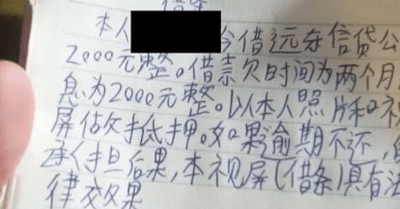 本人 今借远东信贷公
2000元整。借款时间为两个月
息为2000元整。以本人照片和视
屏做抵押。如果逾期不还,
承担后果,本视屏(借条)具有法
律效果